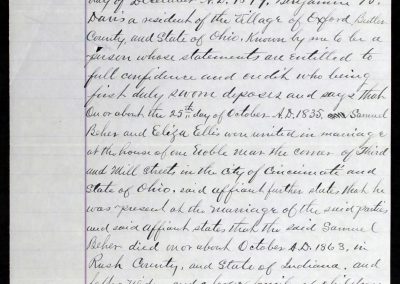 day of December A.D. 1877, Benjamin W.
Davis a resident of the village of Oxford, Butler
County, and State of Ohio. Known by me to be a
person whose statements are entitled to
full confidence and credit who being
first duly sworn deposes and says that
On or about the 25th day of October A.D. 1835, Samuel
Beher and Eliza Ellis were united in marriage
at the house of one near the corner of Third
and Mill Streets in the City of Cincinnati and
State of Ohio. said affiant further states that he
was present at the marriage of the said parties
and said affiant states that the said Samuel
Beher died on or about October A.D. 1863, in
Rush County, and State of Indiana. and